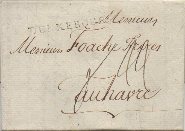 DUNKERQUE
Messieurs
Messieurs Foache freres
au havre